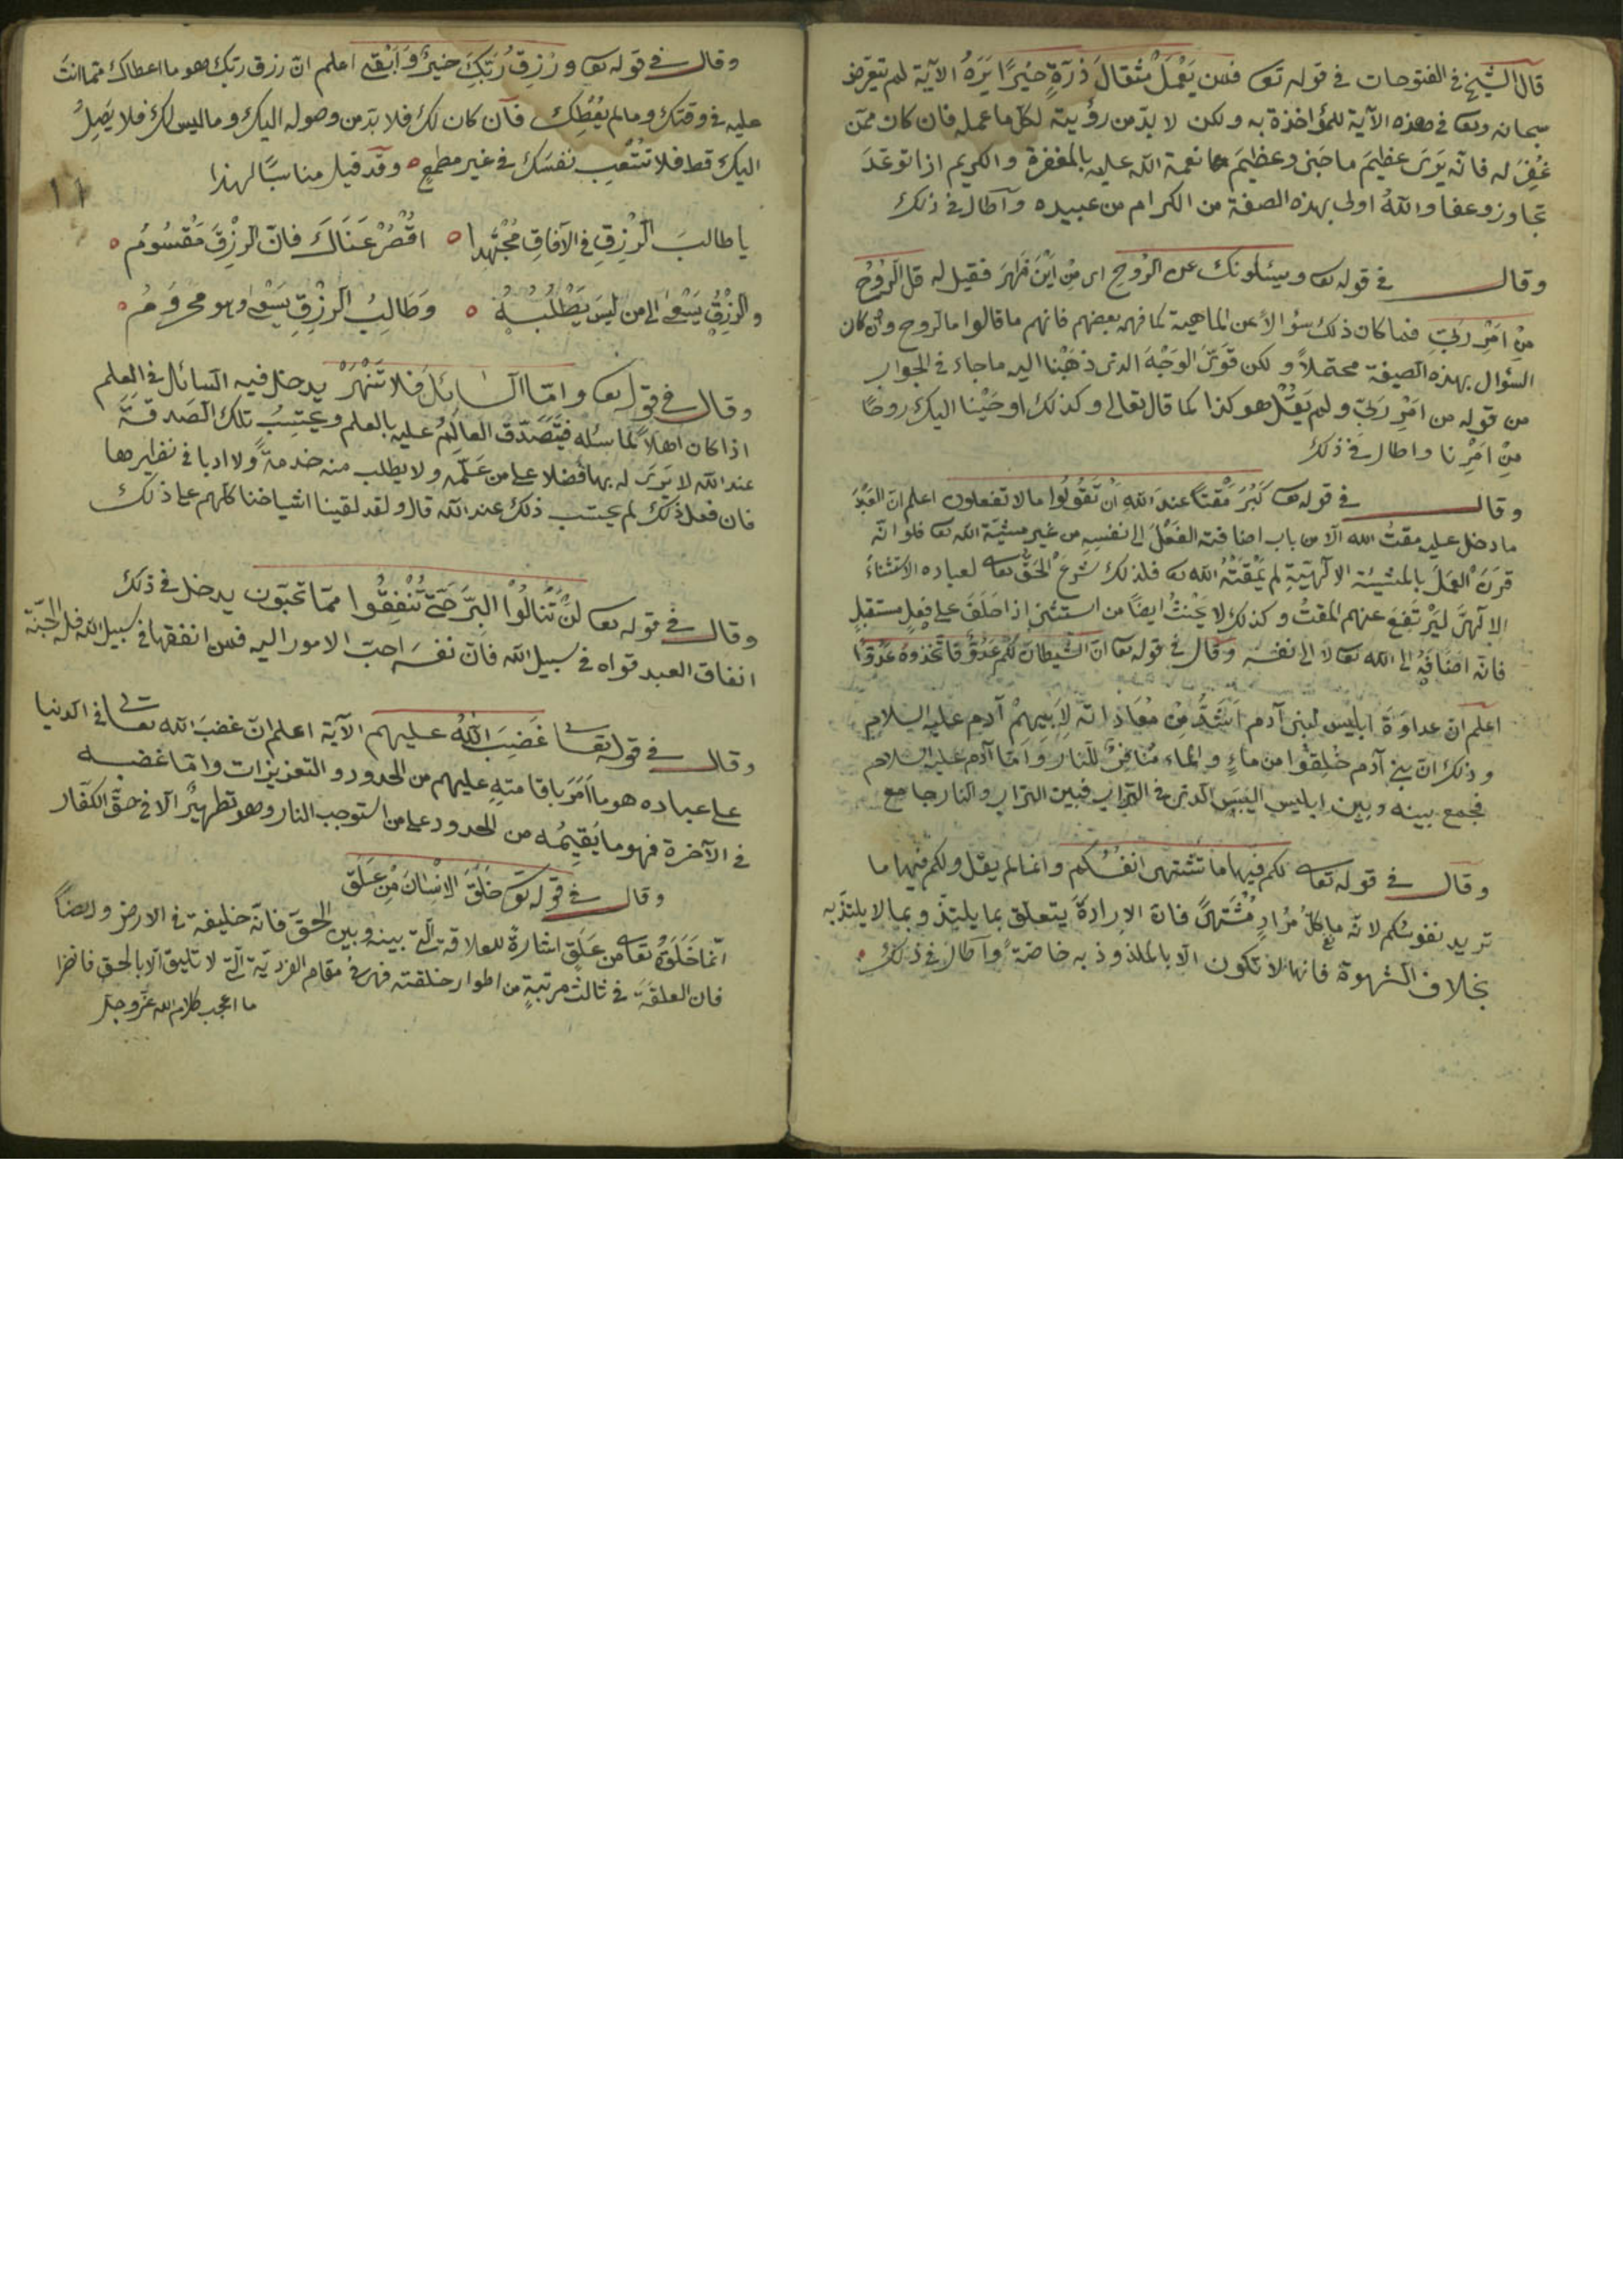 قال الشيخ في الفتوحات في قوله تعا فمن يَعْمَلْ مثقالَ ذرّةٍ خيرًا يَرَهُ الآية لم يتعرّض
سبحانه وتعا في هذه الآية للمؤاخذة به ولكن لا بدّ من رؤيته لكل ما عمله فان كان ممّن
غُفِرَ له فانّه يَرَى عظيمَ ما جَنى وعظيمَ نعمة الله عليه بالمغفرة والكريم اذا توعّدَ
تجاوز وعفا واللهُ اولى بهذه الصفة من الكرام من عبيده وأطال في ذلك
وقال في قوله تعا ويسئلونك عن الرُّوحِ اى مِنْ اَيْنَ ظَهَرَ فقيل له قل الرُّوحُ
مِنْ اَمْرِ ربّي فما كان ذلك سؤالاً عن الماهية كما فهمه بعضهم فانهم ما قالوا ما الروح وان كان
السؤال بهذه الصيغة محتملاً ولكن قوَّىَ الوَجْهَ الذى ذهَبْنا اليه ما جاء في الجواب
من قوله من اَمْرِ رَبّى ولم يَقُلْ هو كذا كما قال تعالى وكذلك اوحَيْنا اليك روحًا
مِنْ اَمْرِنا واطال في ذلك
وقال في قوله تعا كَبُرَ مَقْتًا عندَ اللهِ اَنْ تَقُولُوا ما لا تفعلون اعلم انّ العَبْدَ
ما دخل عليه مقتُ الله الّا من باب اضافته الفعْلَ الى نفسِهِ من غير مشيئة الله تعا فلو انّه
قَرَنَ العَمَلَ بالمشيئة الإلٓهيّةِ لم يَمْقُتْهُ الله تعا فلذلك شَرَعَ الحَقُّ تعا لعباده الاستثناءَ
الإلٓهيَّ ليَرْتَفِعَ عنهم المقتُ وكذلك لا يَحْنثُ ايضًا من استثنى اذا حَلَفَ على فِعلٍ مستقبلٍ
فانّه اضَافَهُ الى الله تعا لا الى نفسه وقال في قوله تعا انّ الشيطان لكُمْ عَدُوٌّ فاتّخذوهُ عَدُوًّا
اعلم انّ عداوَةَ ابليس لبنى آدم اَشَدُّ مِنْ مُعَاداتهِ لِاَبيهمْ آدم عليه السلام
وذلك انّ بنى آدم خُلِقُوا من ماءٍ والماء مُنافِرٌ للنار وَاَمّا آدم عليه السلام
فجمع بينه وبين ابليس اليَبَسُ الذى في التراب فبين التراب والنار جامع
وقال في قوله تعا لكم فيها ما تَشتهى انفُسُكم وانما لم يقل ولكم فيها ما
تريد نفوسُكم لانّه ما كلّ مُرَادٍ مُشْتَهىً فانّ الإرادةَ يتعلّق بما يلتذّ وبما لا يلتذّ به
بخلاف الشهوة فانها لا تكون الّا بالملذوذ به خاصّةً واطال في ذلك
وقال في قوله تعا ورزقُ رَبِّكَ خيرٌ وَاَبْقى اعلم انّ رزق ربّك هو ما اعطاك ممّا انتَ
عليه في وقتك وما لم يُعْطِك فان كان لك فلا بدّ من وصوله اليك وما ليس لك فلا يَصِلُ
اليك قط فلا تُتْعِب نفسَك في غير مطمعٍ وقد قيل مناسبًا لهذا
١١
يا طالبَ الرّزْقِ في الآفاقِ مُجْتَهِدا اقْصُرْ عَنَاكَ فانّ الرزْقَ مَقْسُومُ
والرزْقُ يَسْعى الى من ليسَ يَطْلُبُهُ وَطالِبُ الرّزْقِ يَسْعى وهو محرُومُ
وقال في قوله تعا وامّا السائلَ فلا تَنْهَرْ يدخل فيه السائل في العلم
اذا كان اهلاً لما سئله فيتَصَدّقُ العالِمُ عليه بالعلم ويحتَسِبُ تلك الصَدَقَةَ
عند الله لا يَرَى له بها فضلا على من عَلّمَه ولا يطلب منه خدمةً ولا ادبا في نظيرها
فان فعل ذلك لم يحتسب ذلك عند الله قال ولقد لقينا اشياخنا كلّهم على ذلك
وقال في قوله تعا لَنْ تَنالُوا البِرَّ حتّى تُنْفِقُوا ممّا تحبّون يدخل في ذلك
انفاق العبد قواه في سبيل الله فانّ نفسَه احبّ الامور اليه فمن انفقها في سبيل الله فله الجنّة
وقال في قوله تعالى غَضِبَ اللهُ عليهم الآية اعلم انّ غضبَ الله تعالى في الدنيا
على عباده هو ما اَمَرَ باقامتهِ عليهم من الحدود والتعزيزات وامّا غضبه
في الآخرة فهو ما يُقيمُه من الحدود على من استوجب النار وهو تطهيرٌ الّا في حقّ الكفّار
وقال في قوله تعا خَلَقَ الإنسانَ مِنْ عَلَق
انّما خَلَقَهُ تعا من عَلَقٍ اشارةً للعلاقة الّتى بينه وبين الحقّ فانّه خليفة في الارض وايضًا
فان العلقَةَ في ثالث مرتبةٍ من اطوار خلقته فهى في مقام الفرديّة الّتى لا تليق الّا بالحق فانظر
ما اعجب كلام الله عزّ وجلّ